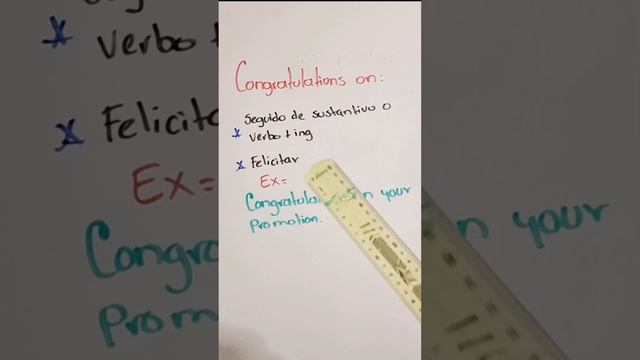 Congratulations on:
Seguido de sustantivo o
* Verbo + ing
* Felicitar
Ex=
Congratula on your
Promotion.